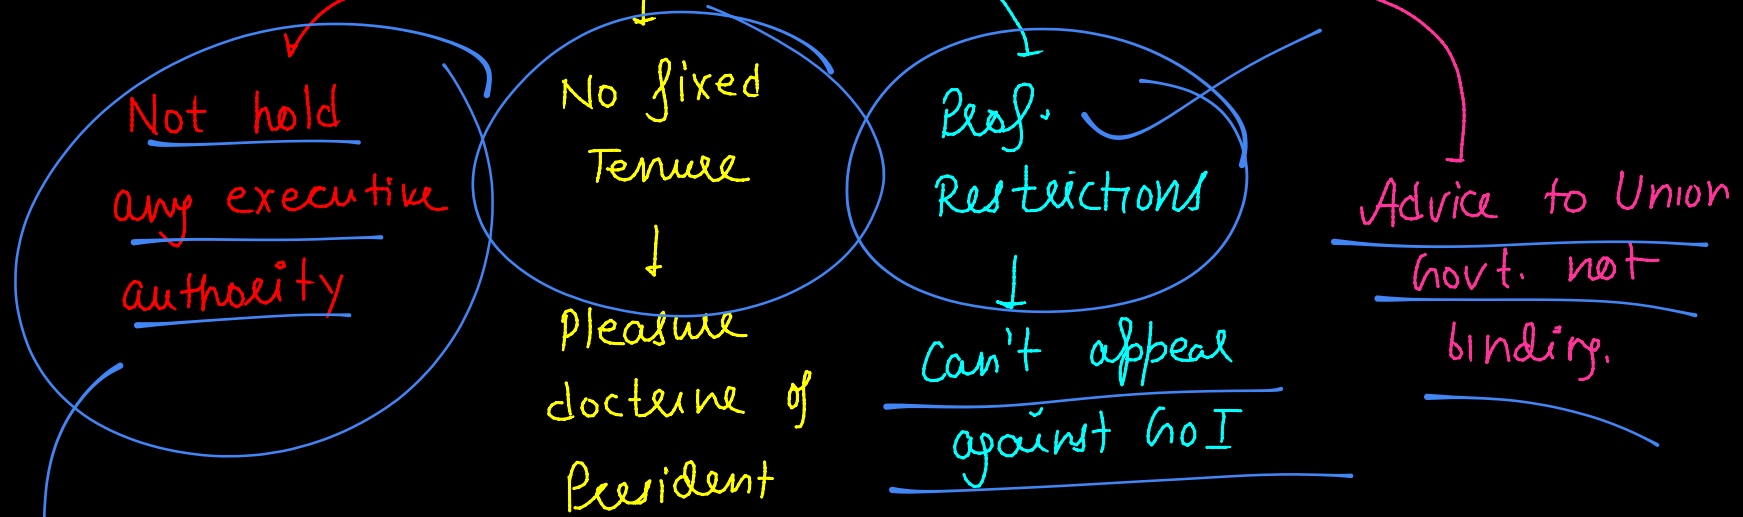 Not hold
any executive
authority
No fixed
Tenure
Pleasure
doctrine of
President
Prof.
Restrictions
Can't appeal
against GoI
Advice to Union
Govt. not
binding.